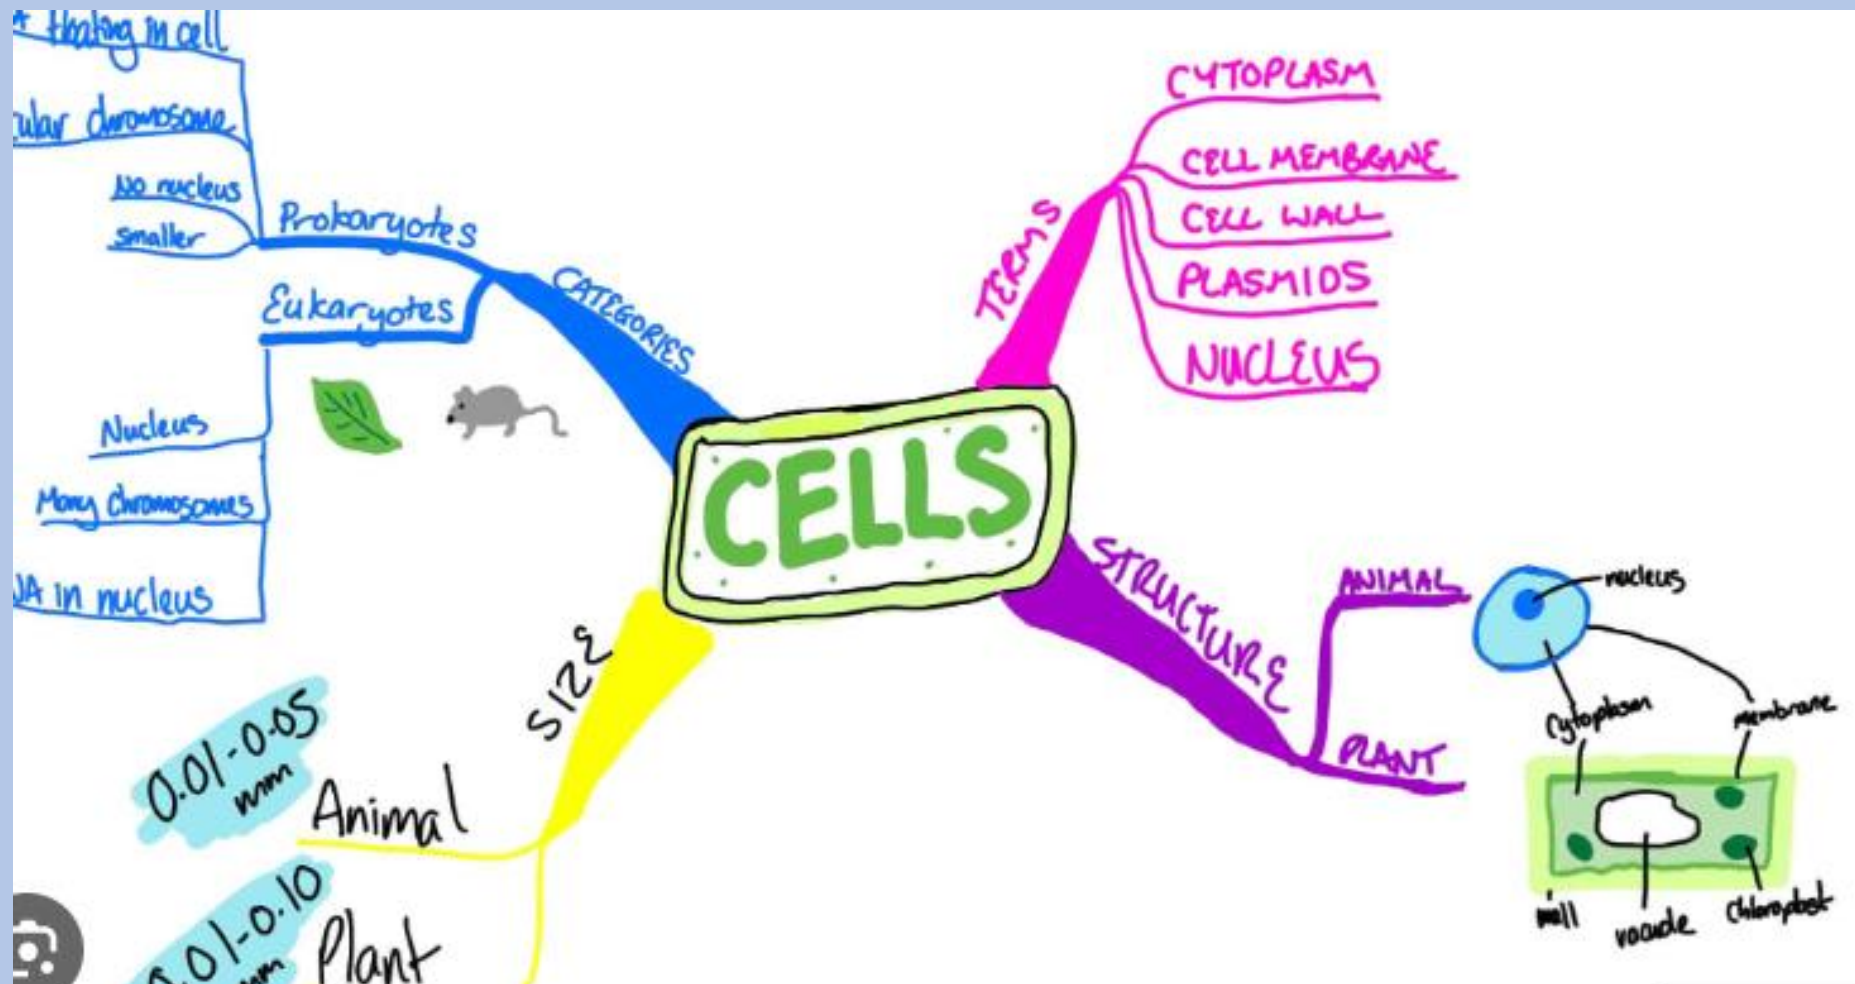 floating in cell
cular chromosome
No nucleus
smaller
Prokaryotes
Eukaryotes
Nucleus
Many Chromosomes
NA in nucleus
CATEGORIES
TERMS
CYTOPLASM
CELL MEMBRANE
CELL WALL
PLASMIDS
NUCLEUS
CELLS
STRUCTURE
ANIMAL
nucleus
Cytoplasm
membrane
PLANT
wall
vacuole
Chloroplast
SIZE
0.01-0.05
mm
Animal
0.01-0.10
mm
Plant